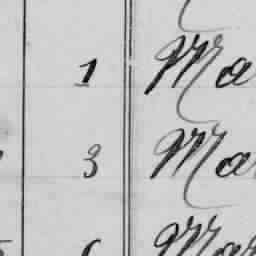 1 Ma
3 Mar
6 Mar